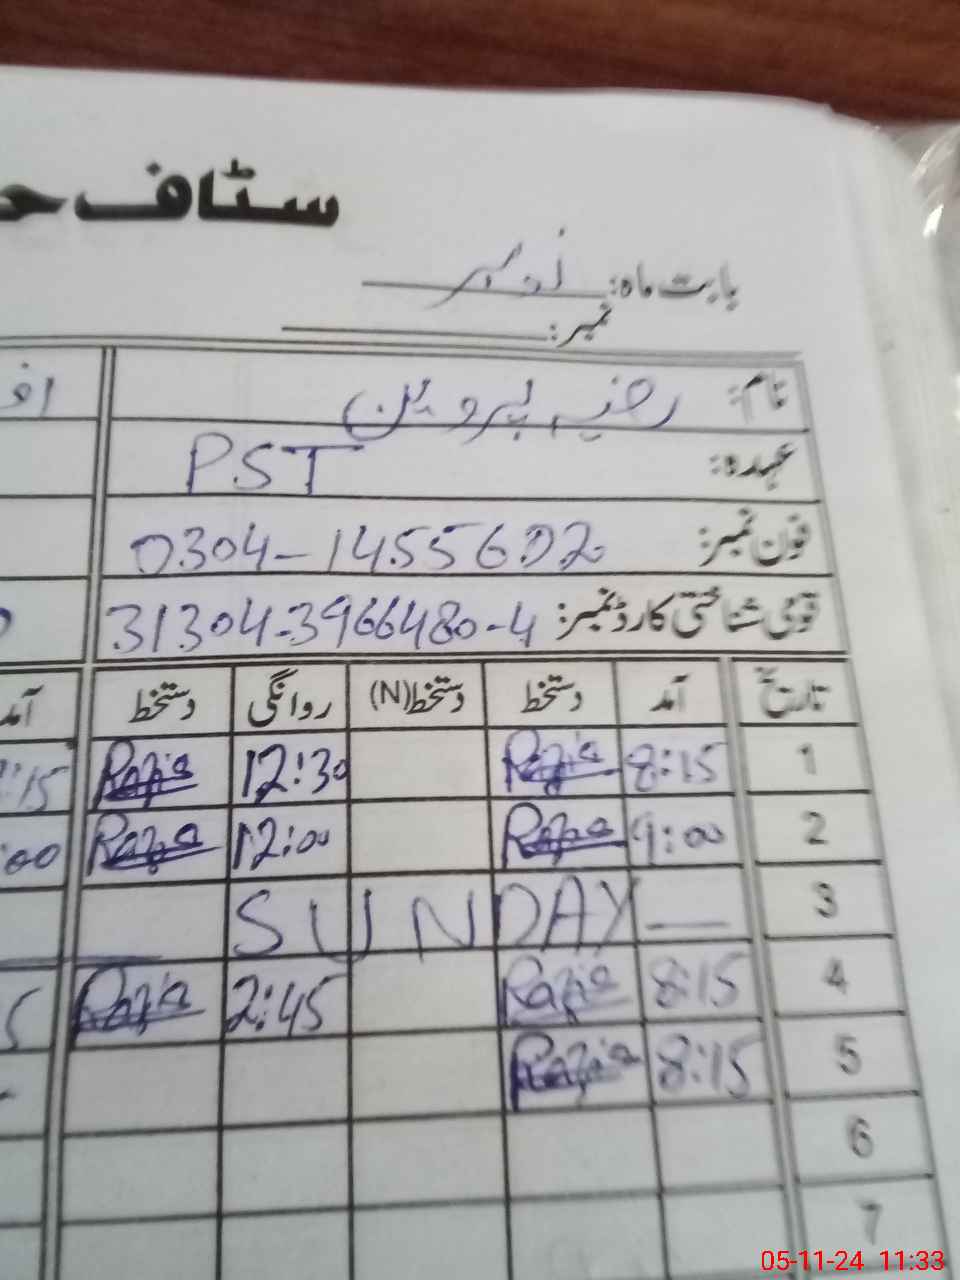 سٹاف
بابت ماہ: نومبر
نمبر:
نام: رضیہ پروین
عہدہ: PST
فون نمبر: 0304-1455692
قومی شناختی کارڈ نمبر: 31304-3966480-4
تاریخ آمد دستخط دستخط(N) روانگی دستخط آمد
1 8:15 Razia 12:30 Razia :15
2 9:00 Razia 12:00 Razia :00
3 — SUNDAY
4 8:15 Razia 2:45 Razia 5
5 8:15 Razia
6
7
05-11-24 11:33